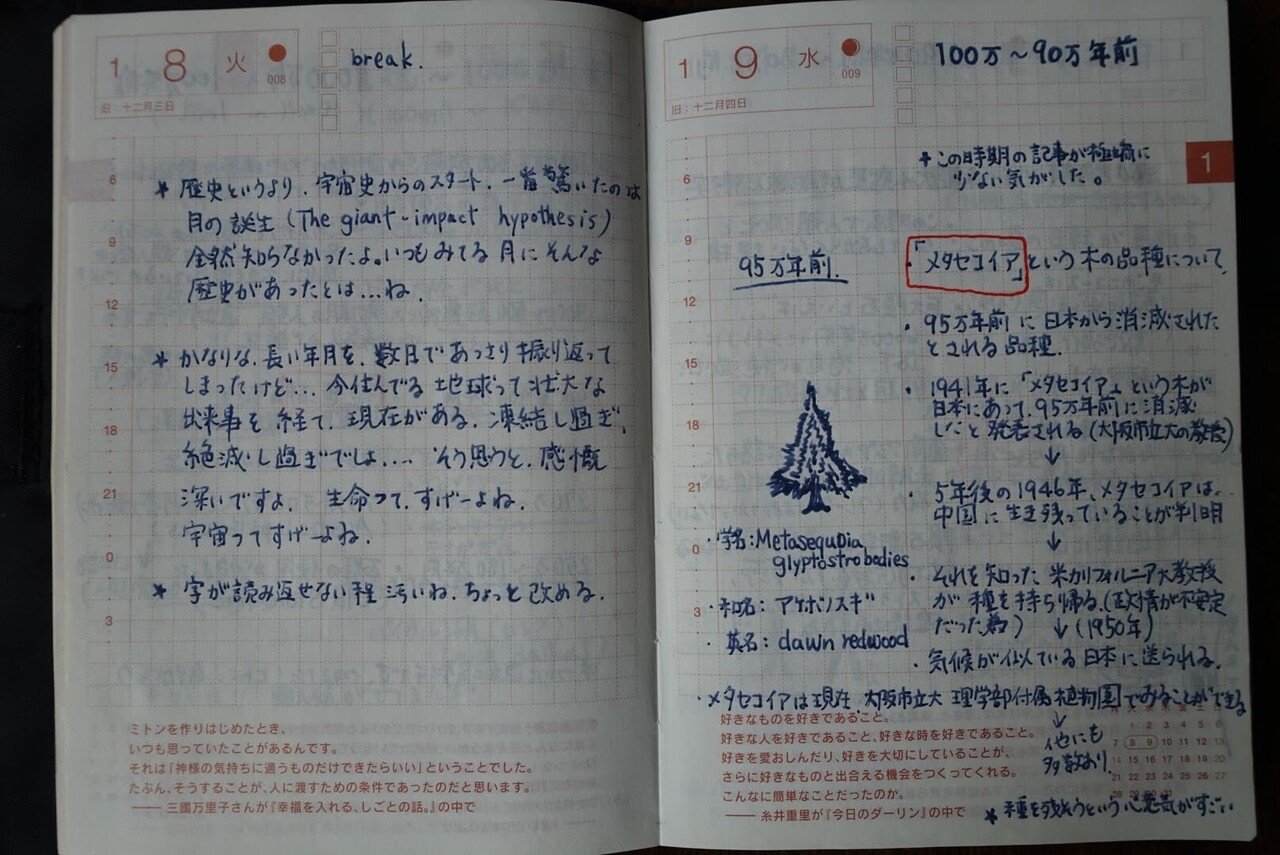 1 8 火 008
旧：十二月三日
break.
6
9
12
15
18
21
0
3
* 歴史というより、宇宙史からのスタート. 一番驚いたのは
月の誕生 (The giant-impact hypothesis)
全然知らなかったよ。いつもみてる月にそんな
歴史があったとは…ね.
* かなりな、長い年月を、数日であっさり振り返って
しまったけど… 今住んでる地球って壮大な
出来事を経て、現在がある. 凍結し過ぎ、
絶滅し過ぎでしょ…. そう思うと、感慨
深いですよ. 生命って、すげーよね.
宇宙ってすげーよね.
* 字が読み返せない程汚いね. ちょっと改める.
ミトンを作りはじめたとき、
いつも思っていたことがあるんです。
それは「神様の気持ちに適うものだけできたらいい」ということでした。
たぶん、そうすることが、人に渡すための条件であったのだと思います。
—— 三國万里子さんが『幸福を入れる、しごとの話。』の中で
1 9 水 009
旧：十二月四日
100万〜90万年前
1
6
9
12
15
18
21
0
3
* この時期の記事が極端に
少ない気がした。
95万年前.
・「メタセコイア」という木の品種について.
・95万年前に日本から消滅された
とされる品種.
・1941年に「メタセコイア」という木が
日本にあって、95万年前に消滅
したと発表される(大阪市立大の教授)
↓
・5年後の1946年、メタセコイアは、
中国に生き残っていることが判明
↓
・それを知った米カリフォルニア大教授
が種を持ち帰る. (政情が不安定
だった為) ↓ (1950年)
・気候が似ている日本に送られる.
・学名: Metasequoia
glyptostrobodies
・和名: アケボノスギ
・英名: dawn redwood
・メタセコイアは現在、大阪市立大 理学部付属植物園でみることができる
↓
他にも
多数あり.
好きなものを好きであること。
好きな人を好きであること、好きな時を好きであること。
好きを愛おしんだり、好きを大切にしていることが、
さらに好きなものと出合える機会をつくってくれる。
こんなに簡単なことだったのか。
—— 糸井重里が『今日のダーリン』の中で
7 8 9 10
14
21
28
* 種を残そうという心意気がすごい